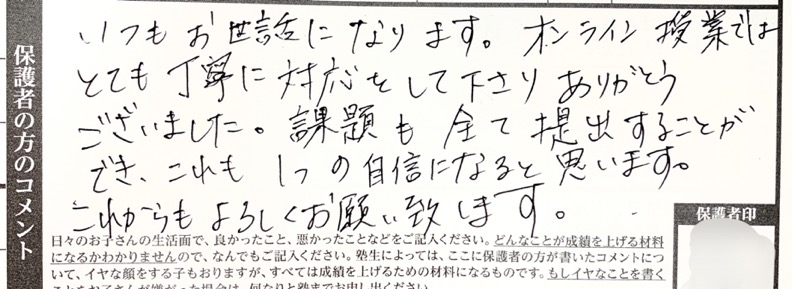 保護者の方のコメント
いつもお世話になります。オンライン授業では
とても丁寧に対応をして下さりありがとう
ございました。課題も全て提出することが
でき、これも1つの自信になると思います。
これからもよろしくお願い致します。
保護者印
日々のお子さんの生活面で、良かったこと、悪かったことなどをご記入ください。どんなことが成績を上げる材料
になるかわかりませんので、なんでもご記入ください。塾生によっては、ここに保護者の方が書いたコメントにつ
いて、イヤな顔をする子もおりますが、すべては成績を上げるための材料になるものです。もしイヤなことを書く